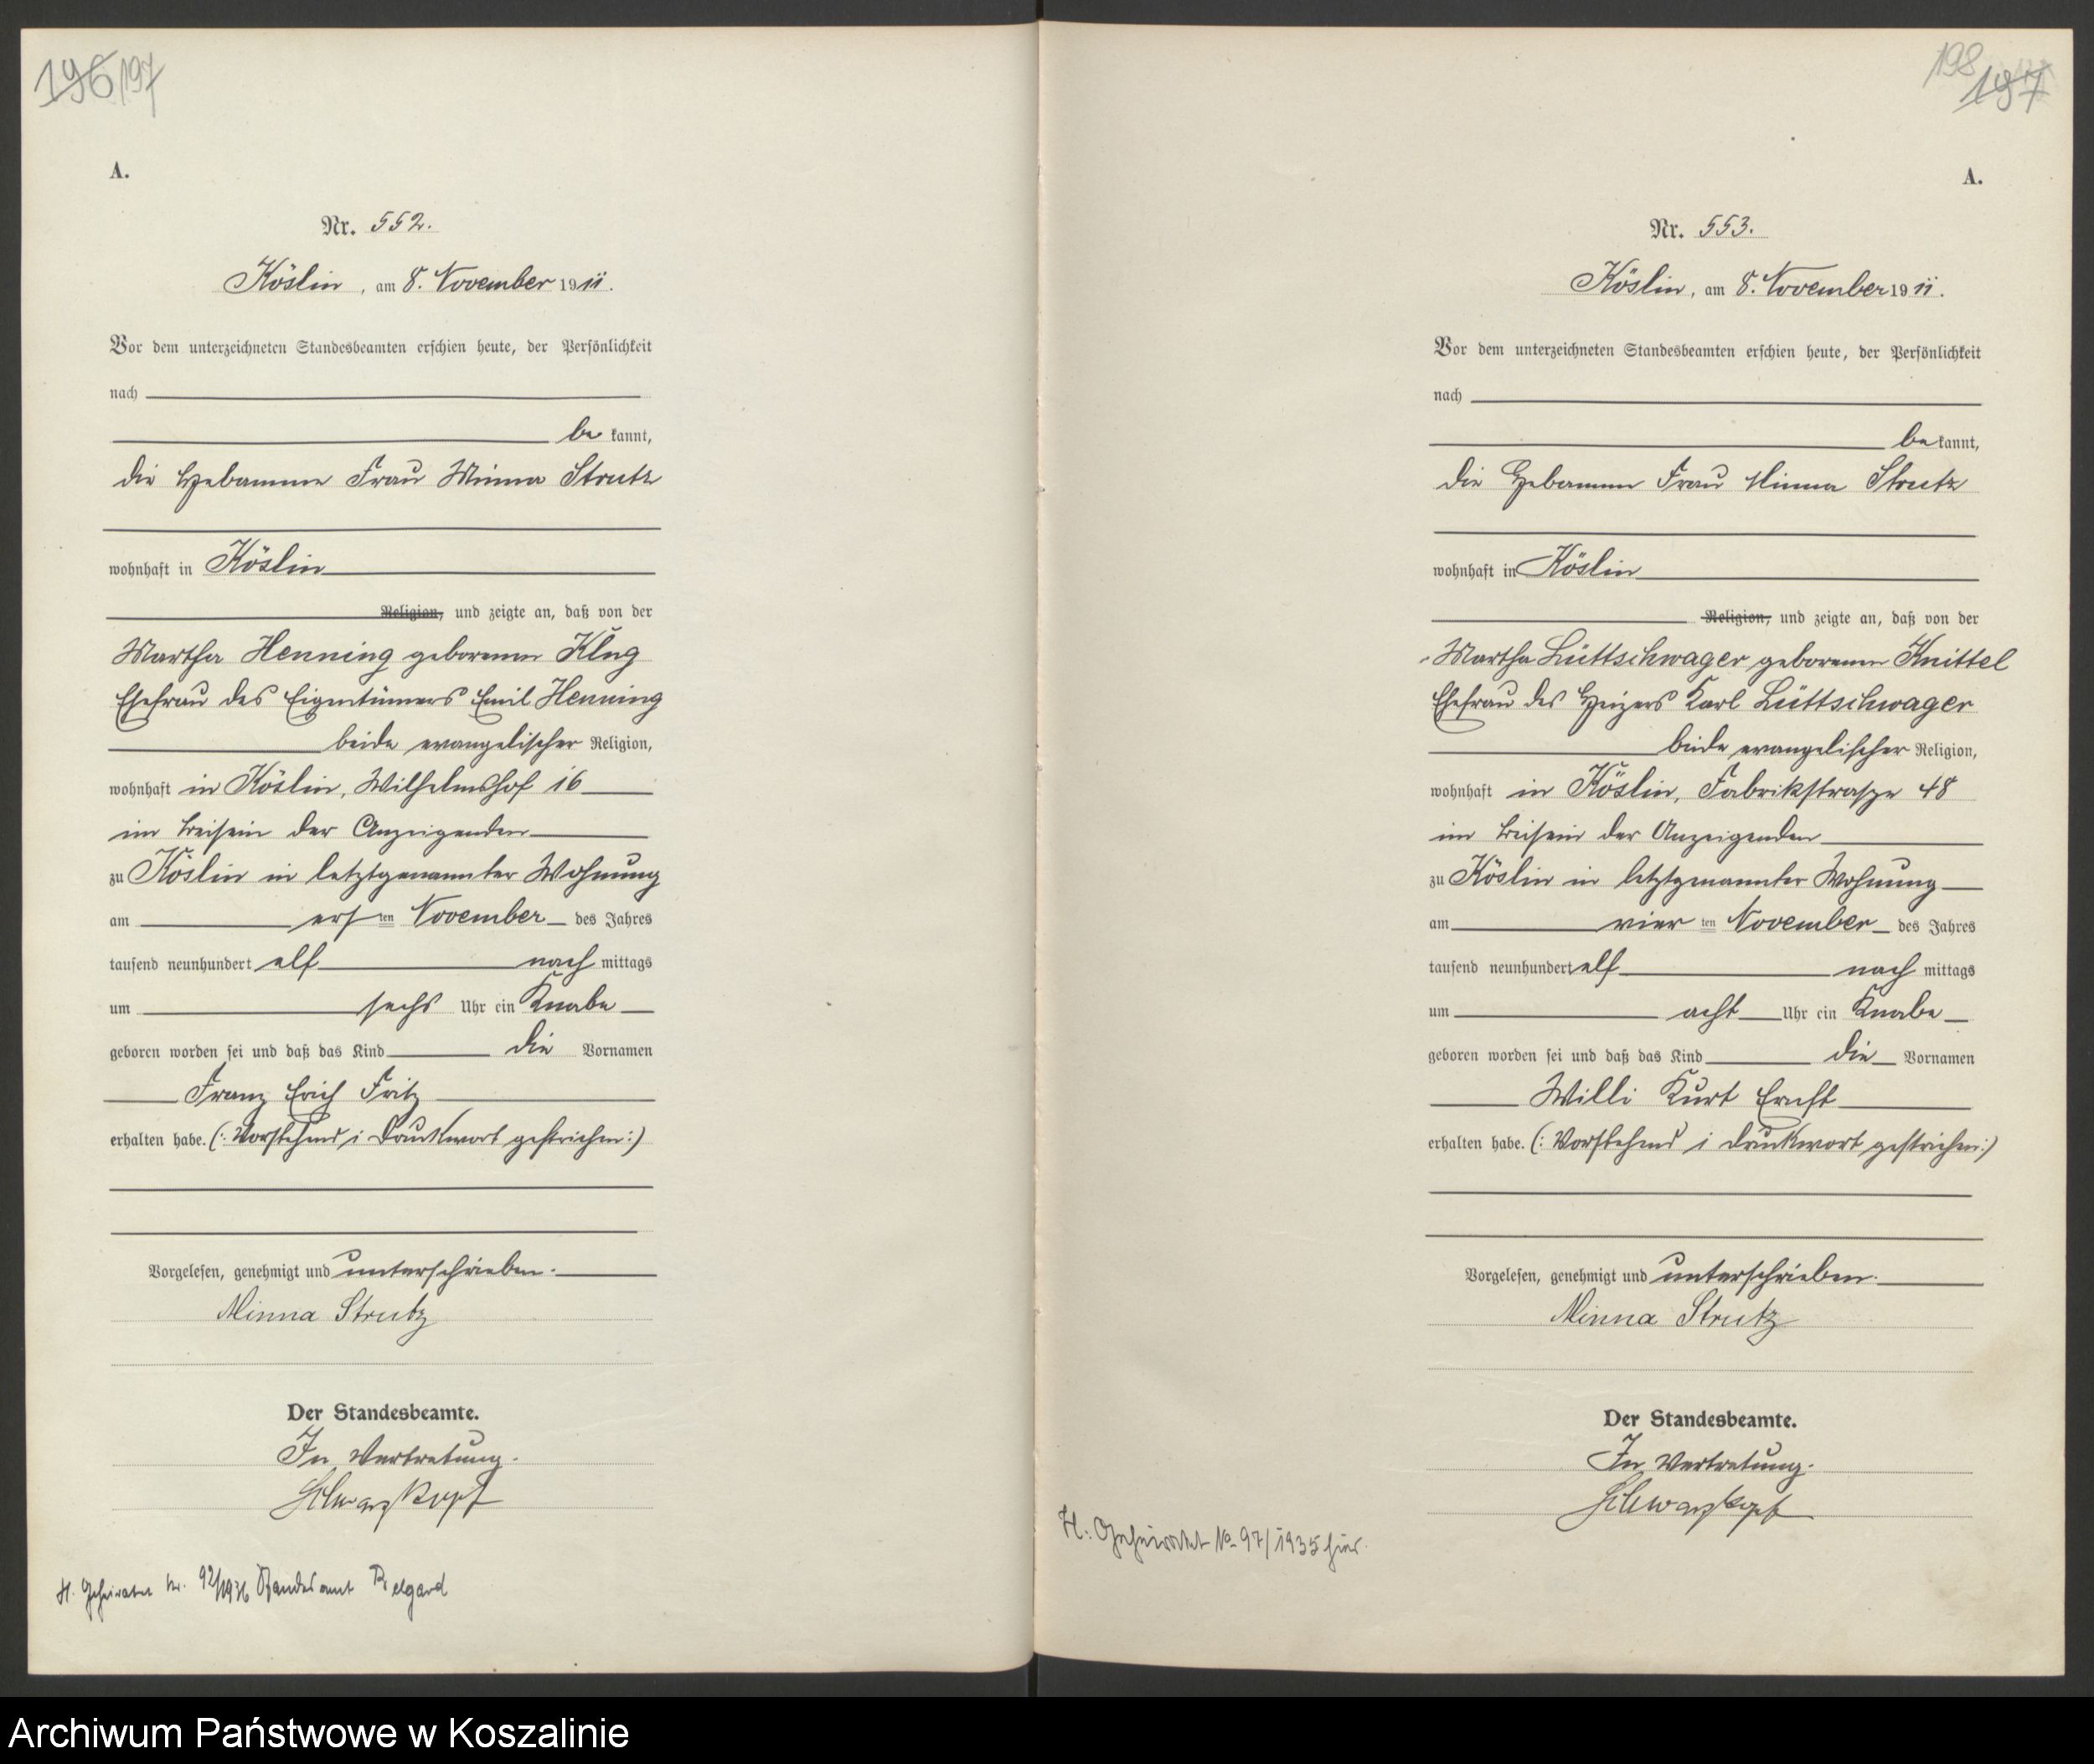 196 197
A.
Nr. 552.
Köslin, am 8. November 1911.
Vor dem unterzeichneten Standesbeamten erschien heute, der Persönlichkeit
nach
be kannt,
die Hebamme Frau Minna Strutz
wohnhaft in Köslin
Religion, und zeigte an, daß von der
Martha Henning geborenen Klug
Ehefrau des Eigentümers Emil Henning
beide evangelischer Religion,
wohnhaft in Köslin, Wilhelmshof 16
im Beisein der Anzeigenden
zu Köslin in letztgenannter Wohnung
am ersten November des Jahres
tausend neunhundert elf nach mittags
um sechs Uhr ein Knabe
geboren worden sei und daß das Kind die Vornamen
Franz Erich Fritz
erhalten habe. (: Vorstehend 1 Druckwort gestrichen :)
Vorgelesen, genehmigt und unterschrieben.
Minna Strutz
Der Standesbeamte.
In Vertretung.
Schwarzkopf
H. Geheiratet Nr. 92/1936 Standesamt Belgard
198 197
A.
Nr. 553.
Köslin, am 8. November 1911.
Vor dem unterzeichneten Standesbeamten erschien heute, der Persönlichkeit
nach
be kannt,
die Hebamme Frau Minna Strutz
wohnhaft in Köslin
Religion, und zeigte an, daß von der
Martha Lüttschwager geborenen Knittel
Ehefrau des Heizers Karl Lüttschwager
beide evangelischer Religion,
wohnhaft in Köslin, Fabrikstraße 48
im Beisein der Anzeigenden
zu Köslin in letztgenannter Wohnung
am vierten November des Jahres
tausend neunhundert elf nach mittags
um acht Uhr ein Knabe
geboren worden sei und daß das Kind die Vornamen
Willi Kurt Ernst
erhalten habe. (: Vorstehend 1 Druckwort gestrichen :)
Vorgelesen, genehmigt und unterschrieben.
Minna Strutz
Der Standesbeamte.
In Vertretung.
Schwarzkopf
H.: Geheiratet No 97/1935 hier.
Archiwum Państwowe w Koszalinie